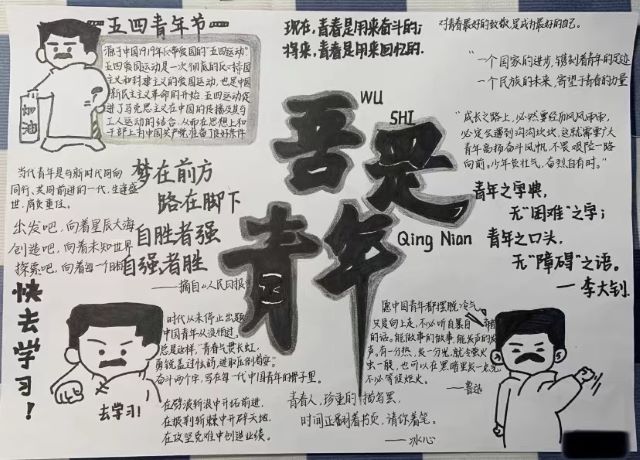 五四青年节
源于中国1919年反帝爱国的"五四运动"
五四爱国运动是一次彻底的反对帝国
主义和封建主义的爱国运动,也是中国
新民主主义革命的开始。五四运动促
进了马克思主义在中国的传播及其与
工人运动的结合,从而在思想上和
干部上为中国共产党准备了良好条件
加油
现在,青春是用来奋斗的;
将来,青春是用来回忆的.
对青春最好的致敬,是成为最好的自己。
"一个国家的进步,镌刻着青年的足迹
一个民族的未来,寄望于青春的力量
"成长之路上,必然要经历风风雨雨,
必定会遇到沟沟坎坎,这就需要广大
青年高扬奋斗风帆,不畏艰险一路
向前。少年负壮气,奋烈自有时。"
WU
SHI
吾是
青年
Qing Nian
当代青年是与新时代同向
同行、共同前进的一代,生逢盛
世,肩负重任。
出发吧,向着星辰大海
创造吧,向着未知世界
探索吧,向着每一个
梦在前方
路在脚下
自胜者强
自强者胜
——摘自《人民日报》
青年之字典,
无"困难"之字;
青年之口头,
无"障碍"之语。
——李大钊
快去学习!
时代从未停止出题
中国青年从没怕过,
总是这样,青春气贯长虹,
勇锐盖过怯弱,进取压倒苟安。
奋斗两个字,写在每一代中国青年的骨子里。
在劈波斩浪中开拓前进,
在披荆斩棘中开辟天地,
在攻坚克难中创造业绩。
去学习!
愿中国青年都摆脱冷气,
只是向上走,不必听自暴自弃者流
的话。能做事的做事,能发声的发
声。有一分热,发一分光,就令萤火
一般,也可以在黑暗里发一点光,
不必等候炬火。
——鲁迅
青春人,珍重的描写罢,
时间正翻着书页,请你着笔。
——冰心